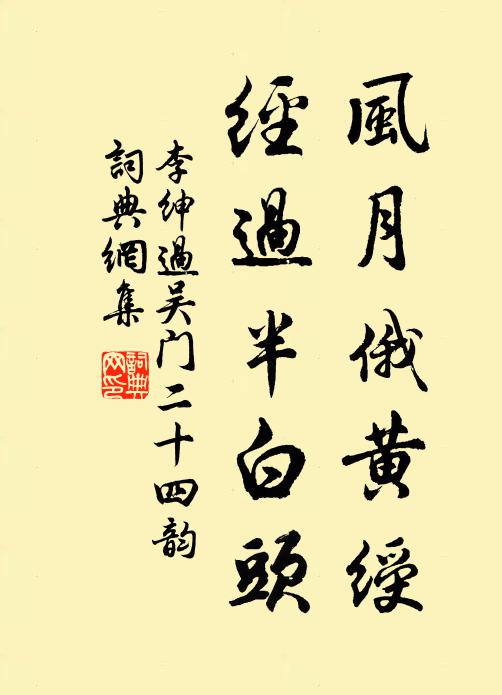 風月俄黄綬
經過半白頭
李紳過吴门二十四韵
詞典網集
詞典
网印